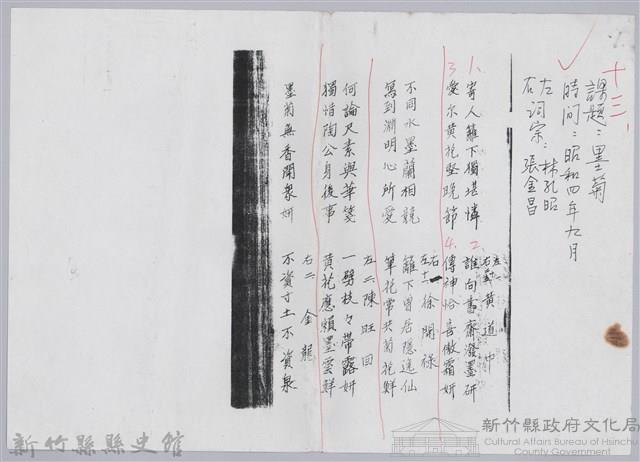 十三、
課題：墨菊
時间：昭和四年九月
左詞宗：林孔昭
右　　張金昌
左一
右 黃道中
1、寄人籬下獨堪憐　2、誰向書齋潑墨研
3、愛尔黄花堅晚節　4、傳神恰喜傲霜妍
右一
左十一 徐開祿
不同水墨蘭相競　籬下曾居隱逸仙
寫到淵明心所愛　筆花常共菊花鮮
左二 陳旺回
何論尺素與華箋　一劈枝々帶露妍
獨惜陶公身後事　黄花應賴墨雲鮮
右二 金龍
墨菊無香開衆妍　不資寸土不資泉
新竹縣縣史館
新竹縣政府文化局
Cultural Affairs Bureau of Hsinchu
County Government